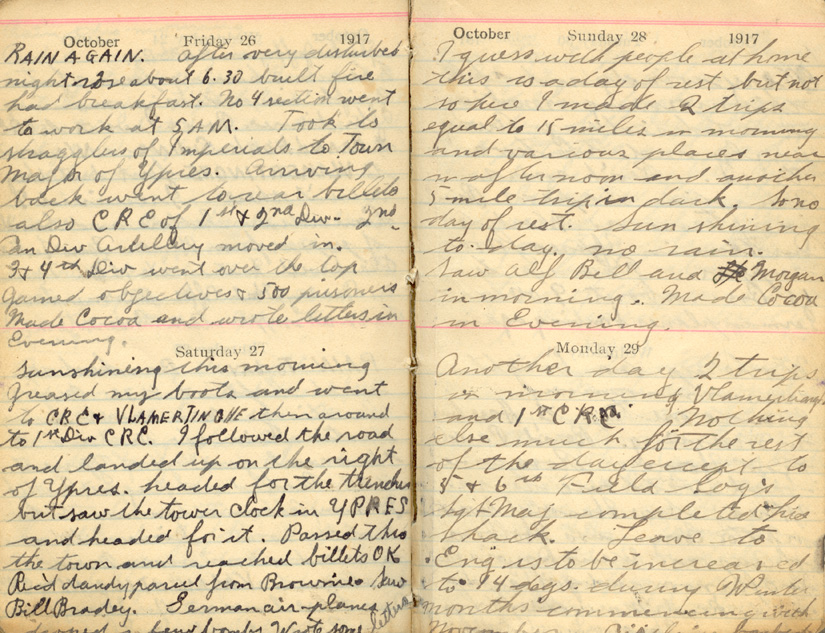 October Friday 26 1917
RAIN AGAIN. after very disturbed
night rose about 6.30 built fire
had breakfast. No 4 section went
to work at 5 AM. Took 16
straggles of Imperials to Town
Major of Ypres. Arriving
back went to rear billets
also CRE of 1st & 2nd Div- 2nd
Can Div Artillery moved in.
3 & 4th Div went over the top
gained objectives & 500 prisoners
Made Cocoa and wrote letters in
Evening.
Saturday 27
Sunshining this morning
greased my boots and went
to CRE & VLAMERTINGHE then around
to 1st Div CRE. I followed the road
and landed up on the right
of Ypres. headed for the trenches
but saw the tower clock in YPRES
and headed for it. Passed thro
the town and reached billets OK
Rec'd dandy parcel from Brownie Saw
Bill Bradey. German air-planes
a few bombs Wrote some letters
October Sunday 28 1917
I guess with people at home
this is a day of rest but not
so here I made 2 trips
equal to 15 miles in morning
and various places near
in afternoon and another
5 mile trip in dark. So no
day of rest. Sun shining
to-day. no rain.
Saw Alf Bill and Morgan
in morning. Made Cocoa
in Evening.
Monday 29
Another day 2 trips
in morning Vlamerting
and 1st CRE. Nothing
else much for the rest
of the day except to
5 & 6th Field Coy's
Sgt Maj completed his
shack. Leave to
Eng is to be increased
to 14 days. during Winter
months commencing with
November.